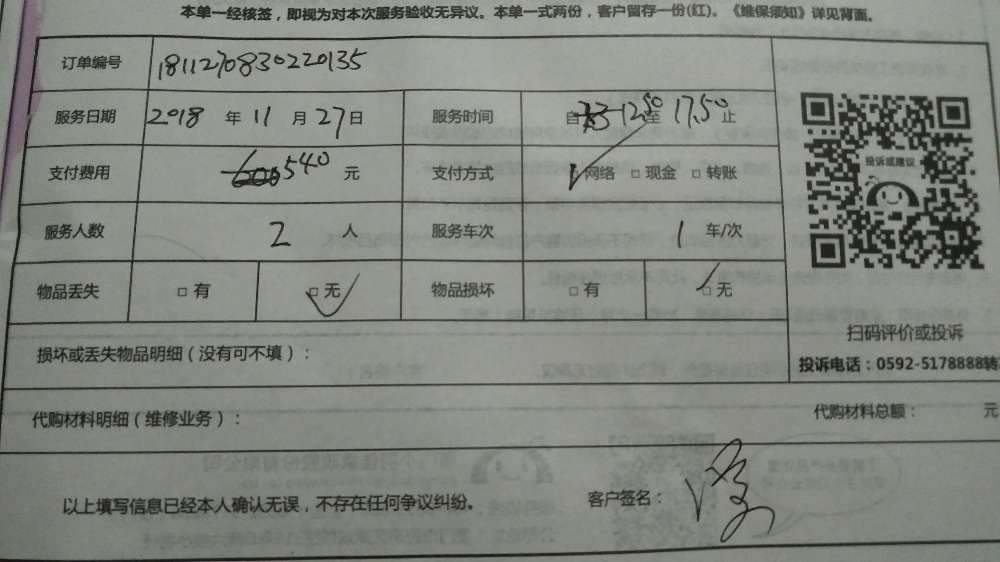 本单一经核签，即视为对本次服务验收无异议。本单一式两份，客户留存一份(红)。《维保须知》详见背面。
订单编号 1811270830220135
服务日期 2018 年 11 月 27 日 服务时间 自 12,50 至 17,50 止
支付费用 540 元 支付方式 □ 网络 □ 现金 □ 转账
服务人数 2 人 服务车次 1 车/次
物品丢失 □ 有 □ 无 物品损坏 □ 有 □ 无
投诉或建议
扫码评价或投诉
投诉电话：0592-5178888转
损坏或丢失物品明细（没有可不填）：
代购材料明细（维修业务）： 代购材料总额： 元
以上填写信息已经本人确认无误，不存在任何争议纠纷。 客户签名：